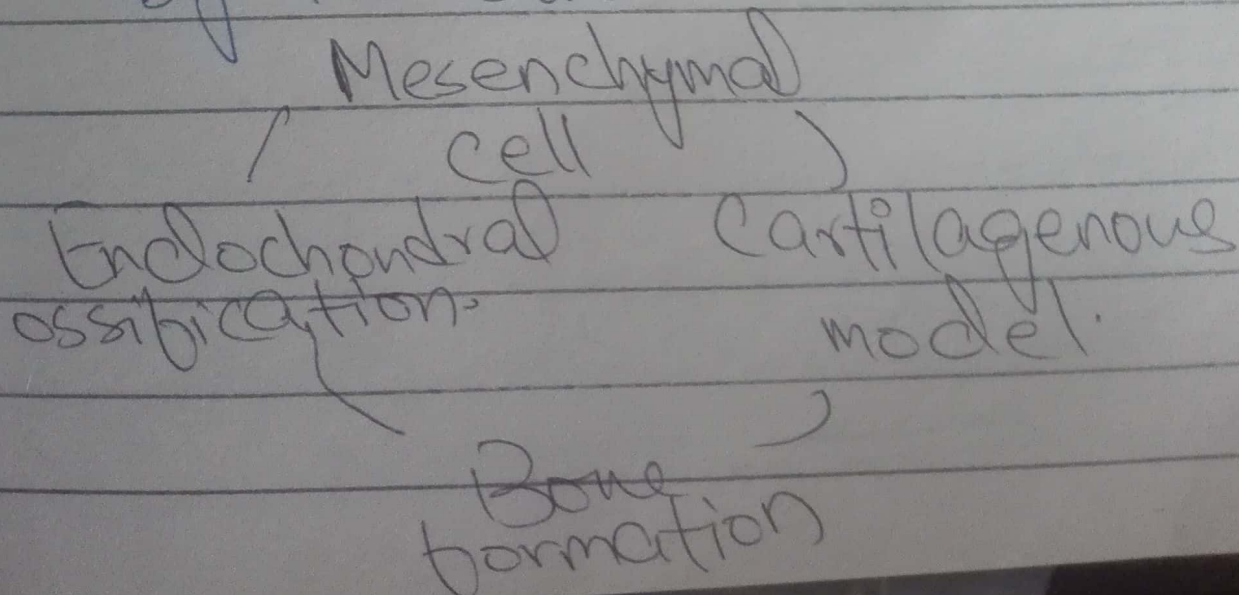 Mesenchymal
cell
Endochondral
ossification.
Cartilagenous
model.
Bone
formation